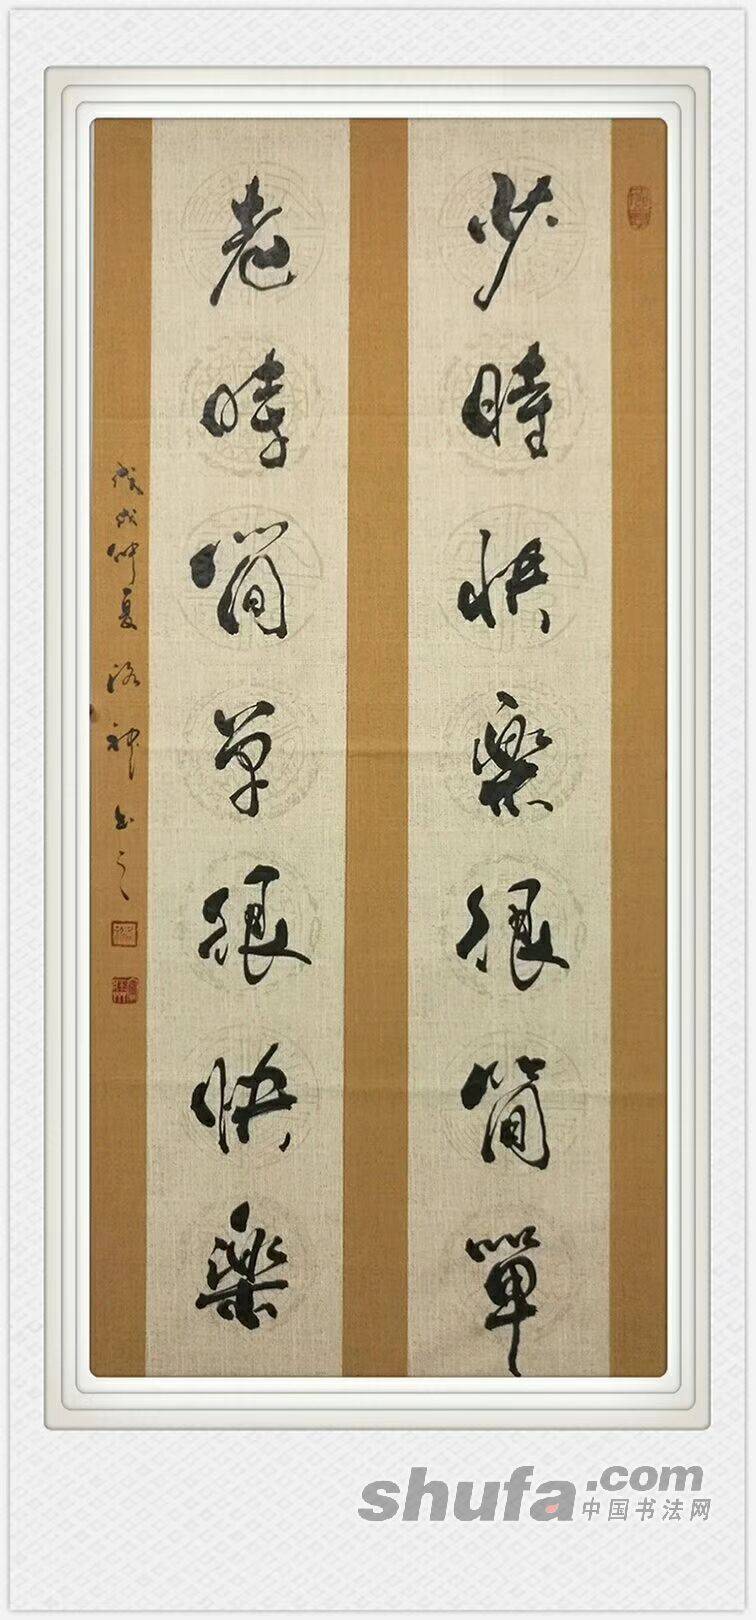 少時快樂很簡單
老時簡单很快樂
戊戌仲夏 洛神书之
shufa.com
中国书法网